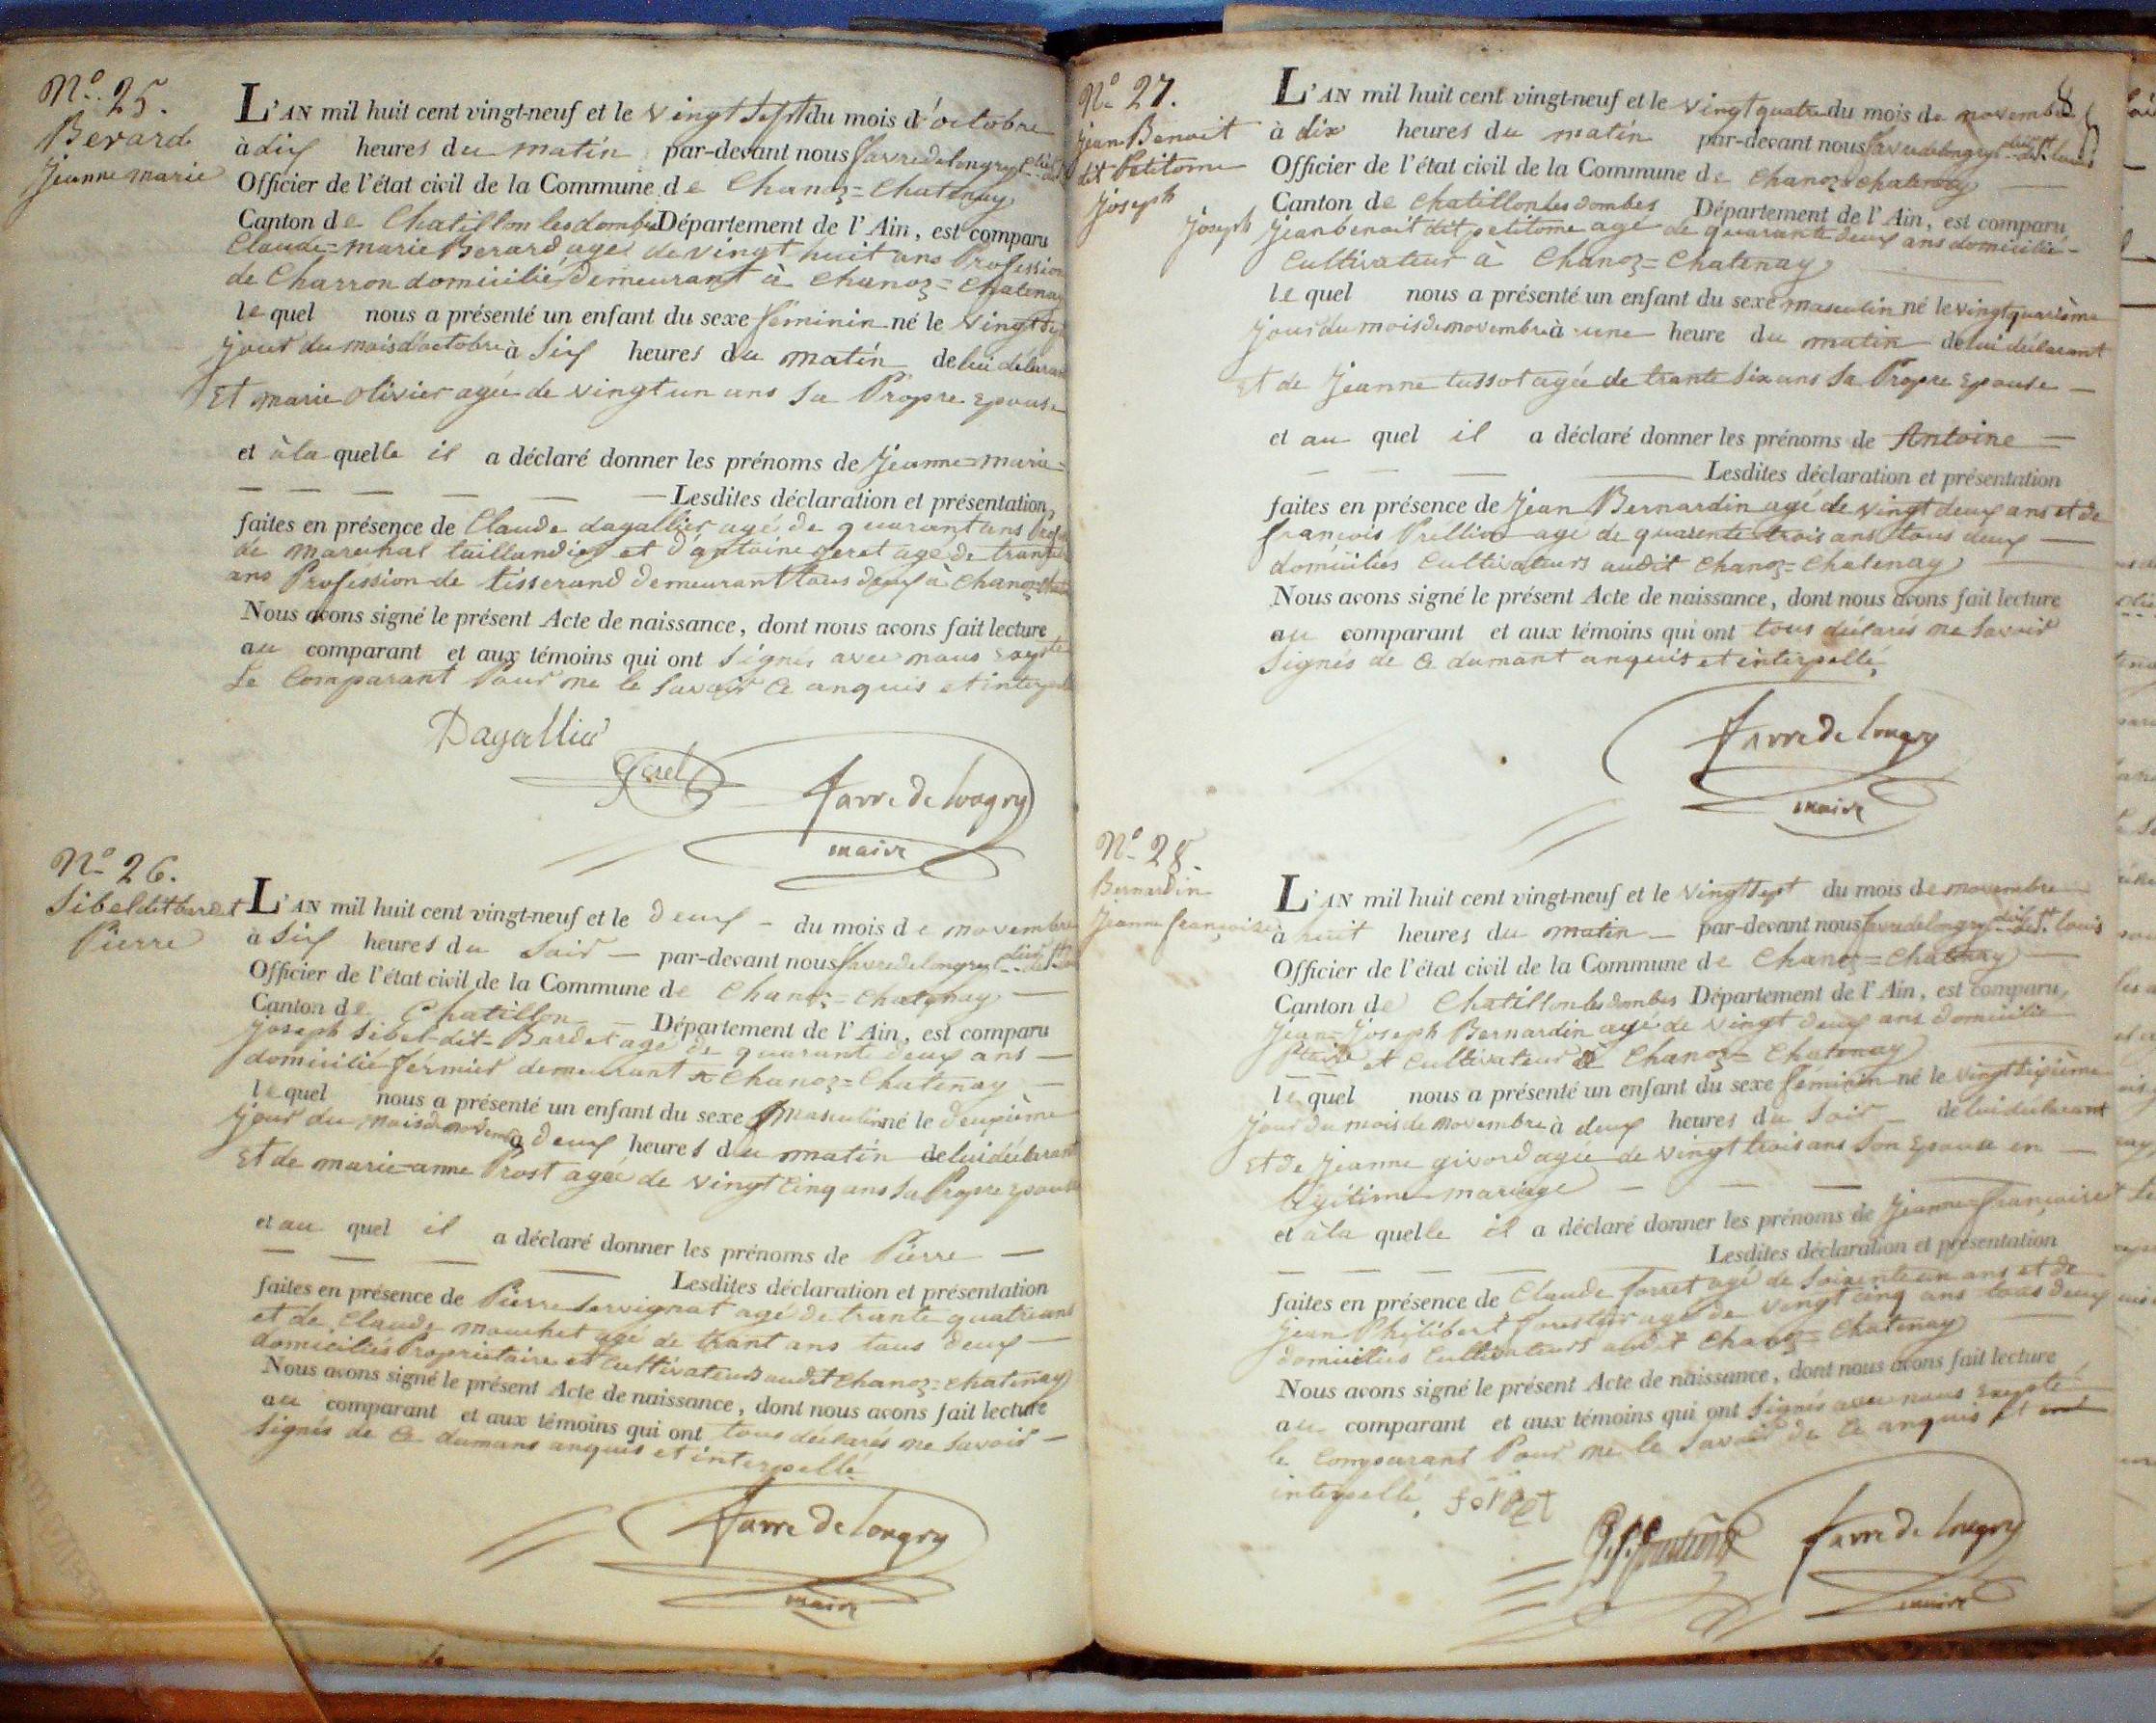 N.º 25.
Berard
Jeanne marie
L'AN mil huit cent vingt-neuf et le vingt Sept du mois d'octobre
à dix heures du matin par-devant nous favre de longry
Officier de l'état civil de la Commune de Chanoz=Chatenay
Canton de Chatillon les dombes Département de l'Ain, est comparu
Claude=marie Berard agé de vingt huit ans Profession
de Charron domicilié demeurant à Chanoz=Chatenay
le quel nous a présenté un enfant du sexe féminin né le vingt Sept
jour du mois d'octobre à Six heures du matin de lui déclarant
Et marie Olivier agée de vingt un ans Sa Propre Epouse
et à la quelle il a déclaré donner les prénoms de Jeanne=marie=
Lesdites déclaration et présentation
faites en présence de Claude dagallier agé de quarant ans
de marechal taillandier et d'antoine geret agé de
ans Profession de tisserand demeurant tous deux à Chanoz
Nous avons signé le présent Acte de naissance, dont nous avons fait lecture
au comparant et aux témoins qui ont Signés avec nous
Le Comparant Pour ne le Savoir Ce anquis et
Dagallier
Geret
favre de longry
maire
Nº 26.
Sibel dit bardet
Pierre
L'AN mil huit cent vingt-neuf et le deux du mois de novembre
à Six heures du Soir par-devant nous favre de longry
Officier de l'état civil de la Commune de Chanoz=Chatenay
Canton de Chatillon Département de l'Ain, est comparu
Joseph Sibel-dit-Bardet agé de quarante deux ans
domicilié fermier demeurant à Chanoz=Chatenay
le quel nous a présenté un enfant du sexe masculin né le deuxième
jour du mois de novembre à deux heures du matin de lui déclarant
Et de marie-anne Prost agée de vingt Cinq ans Sa Propre Epouse
et au quel il a déclaré donner les prénoms de Pierre
Lesdites déclaration et présentation
faites en présence de Pierre Servignat agé de trante quatre ans
et de Claude mouchet agé de trant ans tous deux
domiciliés Propriétaire et Cultivateurs audit Chanoz=Chatenay
Nous avons signé le présent Acte de naissance, dont nous avons fait lecture
au comparant et aux témoins qui ont tous déclarés ne Savoir
Signés de Ce dumans anquis et interpellé
favre de longry
maire
8
Nº 27.
Jean Benoit
dit Petitome
Joseph
L'AN mil huit cent vingt-neuf et le vingt quatre du mois de novembre
à dix heures du matin par-devant nous favre de longry
Officier de l'état civil de la Commune de Chanoz=Chatenay
Canton de Chatillon les dombes Département de l'Ain, est comparu
Joseph Jean benoit dit petitome agé de quarante deux ans domicilié
Cultivateur à Chanoz=Chatenay
le quel nous a présenté un enfant du sexe masculin né le
jour du mois de novembre à une heure du matin de lui déclarant
Et de Jeanne tussot agée de trante Six ans Sa Propre Epouse
et au quel il a déclaré donner les prénoms de Antoine
Lesdites déclaration et présentation
faites en présence de Jean Bernardin agé de vingt deux ans et de
françois agé de quarente trois ans tous deux
domiciliés Cultivateurs audit Chanoz=Chatenay
Nous avons signé le présent Acte de naissance, dont nous avons fait lecture
au comparant et aux témoins qui ont tous déclarés ne Savoir
Signés de Ce dumant anquis et interpellé
favre de longry
maire
Nº 28.
Bernardin
Jeanne françoise
L'AN mil huit cent vingt-neuf et le vingt Sept du mois de novembre
à huit heures du matin par-devant nous favre de longry
Officier de l'état civil de la Commune de Chanoz=Chatenay
Canton de Chatillon les dombes Département de l'Ain, est comparu,
Jean-Joseph Bernardin agé de vingt deux ans domicilié
et Cultivateur à Chanoz=Chatenay
le quel nous a présenté un enfant du sexe féminin né le vingt Sixième
jour du mois de novembre à deux heures du Soir de lui déclarant
Et de Jeanne givord agée de vingt trois ans Son Epouse en
légitime mariage
et à la quelle il a déclaré donner les prénoms de Jeanne=françoise
Lesdites déclaration et présentation
faites en présence de Claude forret agé de Soixente un ans et de
Jean Philibert agé de vingt Cinq ans tous deux
domiciliés Cultivateurs audit Chanoz=Chatenay
Nous avons signé le présent Acte de naissance, dont nous avons fait lecture
au comparant et aux témoins qui ont Signés avec nous Excepté
le Comparant Pour ne le Savoir de Ce anquis et
interpellé. foret
favre de longry
maire